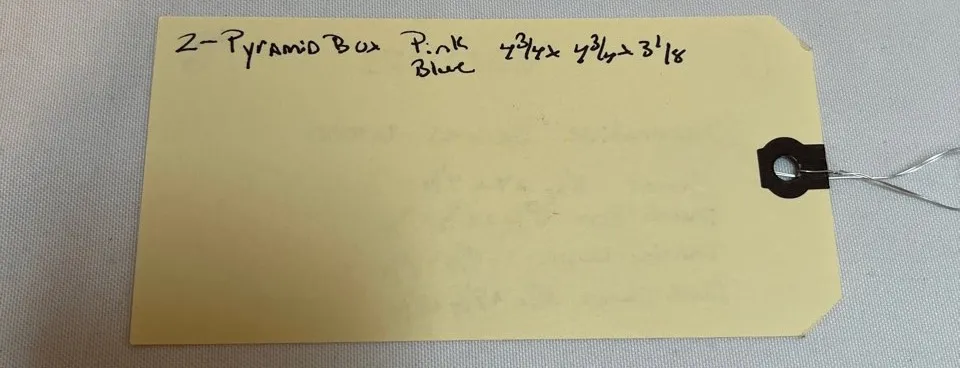 2-Pyramid Box Pink 4 3/4 x 4 3/4 x 3 1/8
Blue